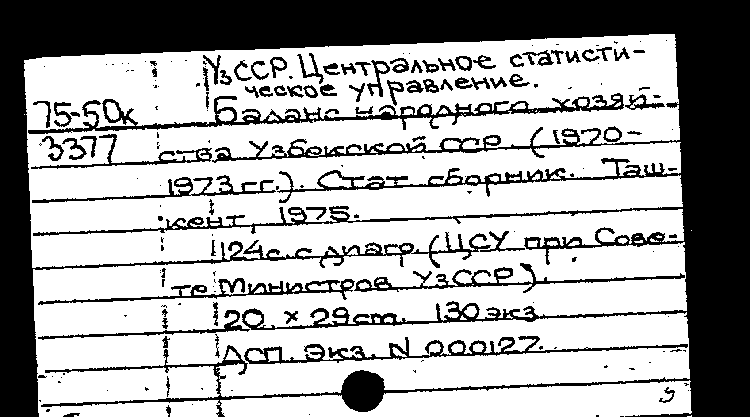 УзССР. Центральное статисти-
ческое управление.
75-50к Баланс народного хозяй-
3377 ства Узбекской ССР. (1970-
1973 гг.). Стат. сборник. Таш-
кент, 1975.
124с. с диагр. (ЦСУ при Сове-
те Министров УзССР).
20 × 29 cm. 130 экз.
ДСП. Экз. N 000127.